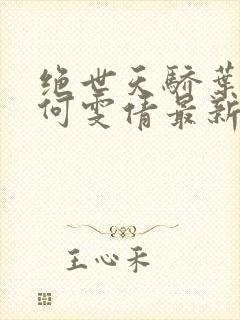 绝世天骄叶
何雯倩最新
王心采